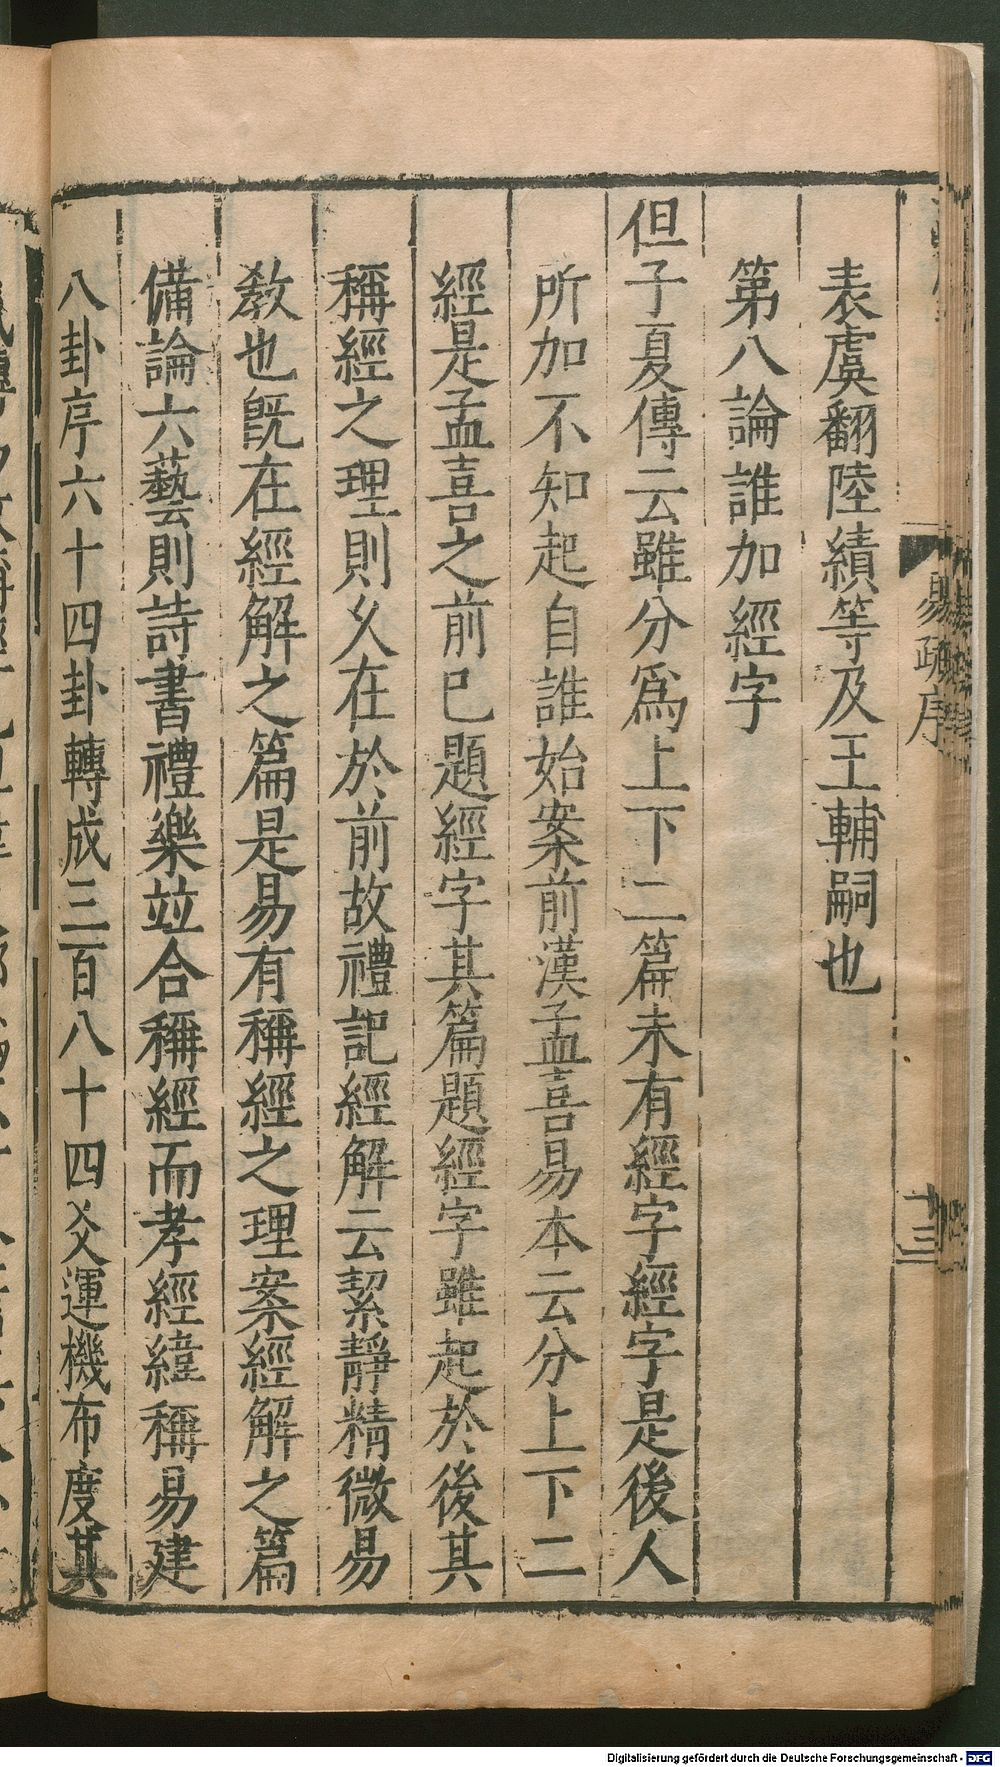 易疏序
十三
表虞翻陸績等及王輔嗣也
第八論誰加經字
但子夏傳云雖分爲上下二篇未有經字經字是後人
所加不知起自誰始案前漢孟喜易本云分上下二
經是孟喜之前已題經字其篇題經字雖起於後其
稱經之理則乆在於前故禮記經解云絜靜精微易
敎也旣在經解之篇是易有稱經之理案經解之篇
備論六藝則詩書禮樂竝合稱經而孝經緯稱易建
八卦序六十四卦轉成三百八十四爻運機布度其
Digitalisierung gefördert durch die Deutsche Forschungsgemeinschaft - DFG